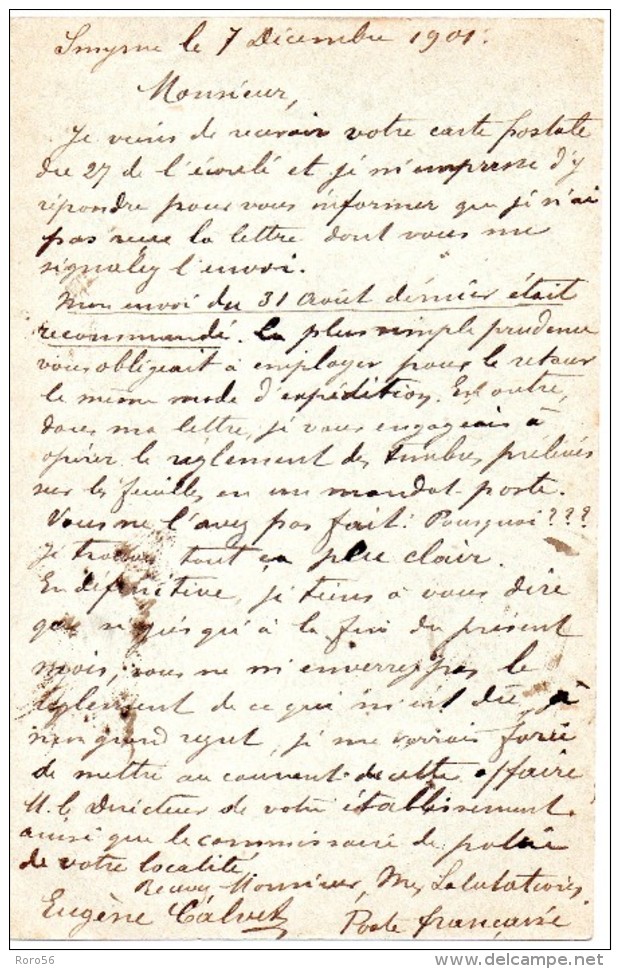 Smyrne le 7 Décembre 1901.
Monsieur,
Je viens de recevoir votre carte postale
du 27 de l'écoulé et je m'empresse d'y
répondre pour vous informer que je n'ai
pas reçu la lettre dont vous me
signalez l'envoi.
Mon envoi du 31 Août dernier était
recommandé. La plus simple prudence
vous obligeait à employer pour le retour
le même mode d'expédition. En outre,
dans ma lettre, je vous engageais à
opérer le règlement des timbres prélevés
sur les feuilles en un mandat-poste.
Vous ne l'avez pas fait! Pourquoi???
Je trouve tout ça peu clair.
En définitive, je tiens à vous dire
que si jusqu'à la fin du présent
mois, vous ne m'enverrez pas le
règlement de ce qui m'est dû, à
mon grand regret, je me verrais forcé
de mettre au courant de cette affaire
M. le Directeur de votre établissement
ainsi que le commissaire de police
de votre localité.
Recevez Monsieur, Mes Salutations
Eugène Calvet
Poste française
Roro56
www.delcampe.net